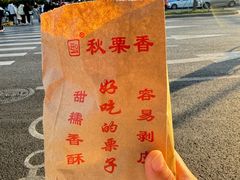 秋栗香
好吃的栗子
容易剥皮
甜糯香酥